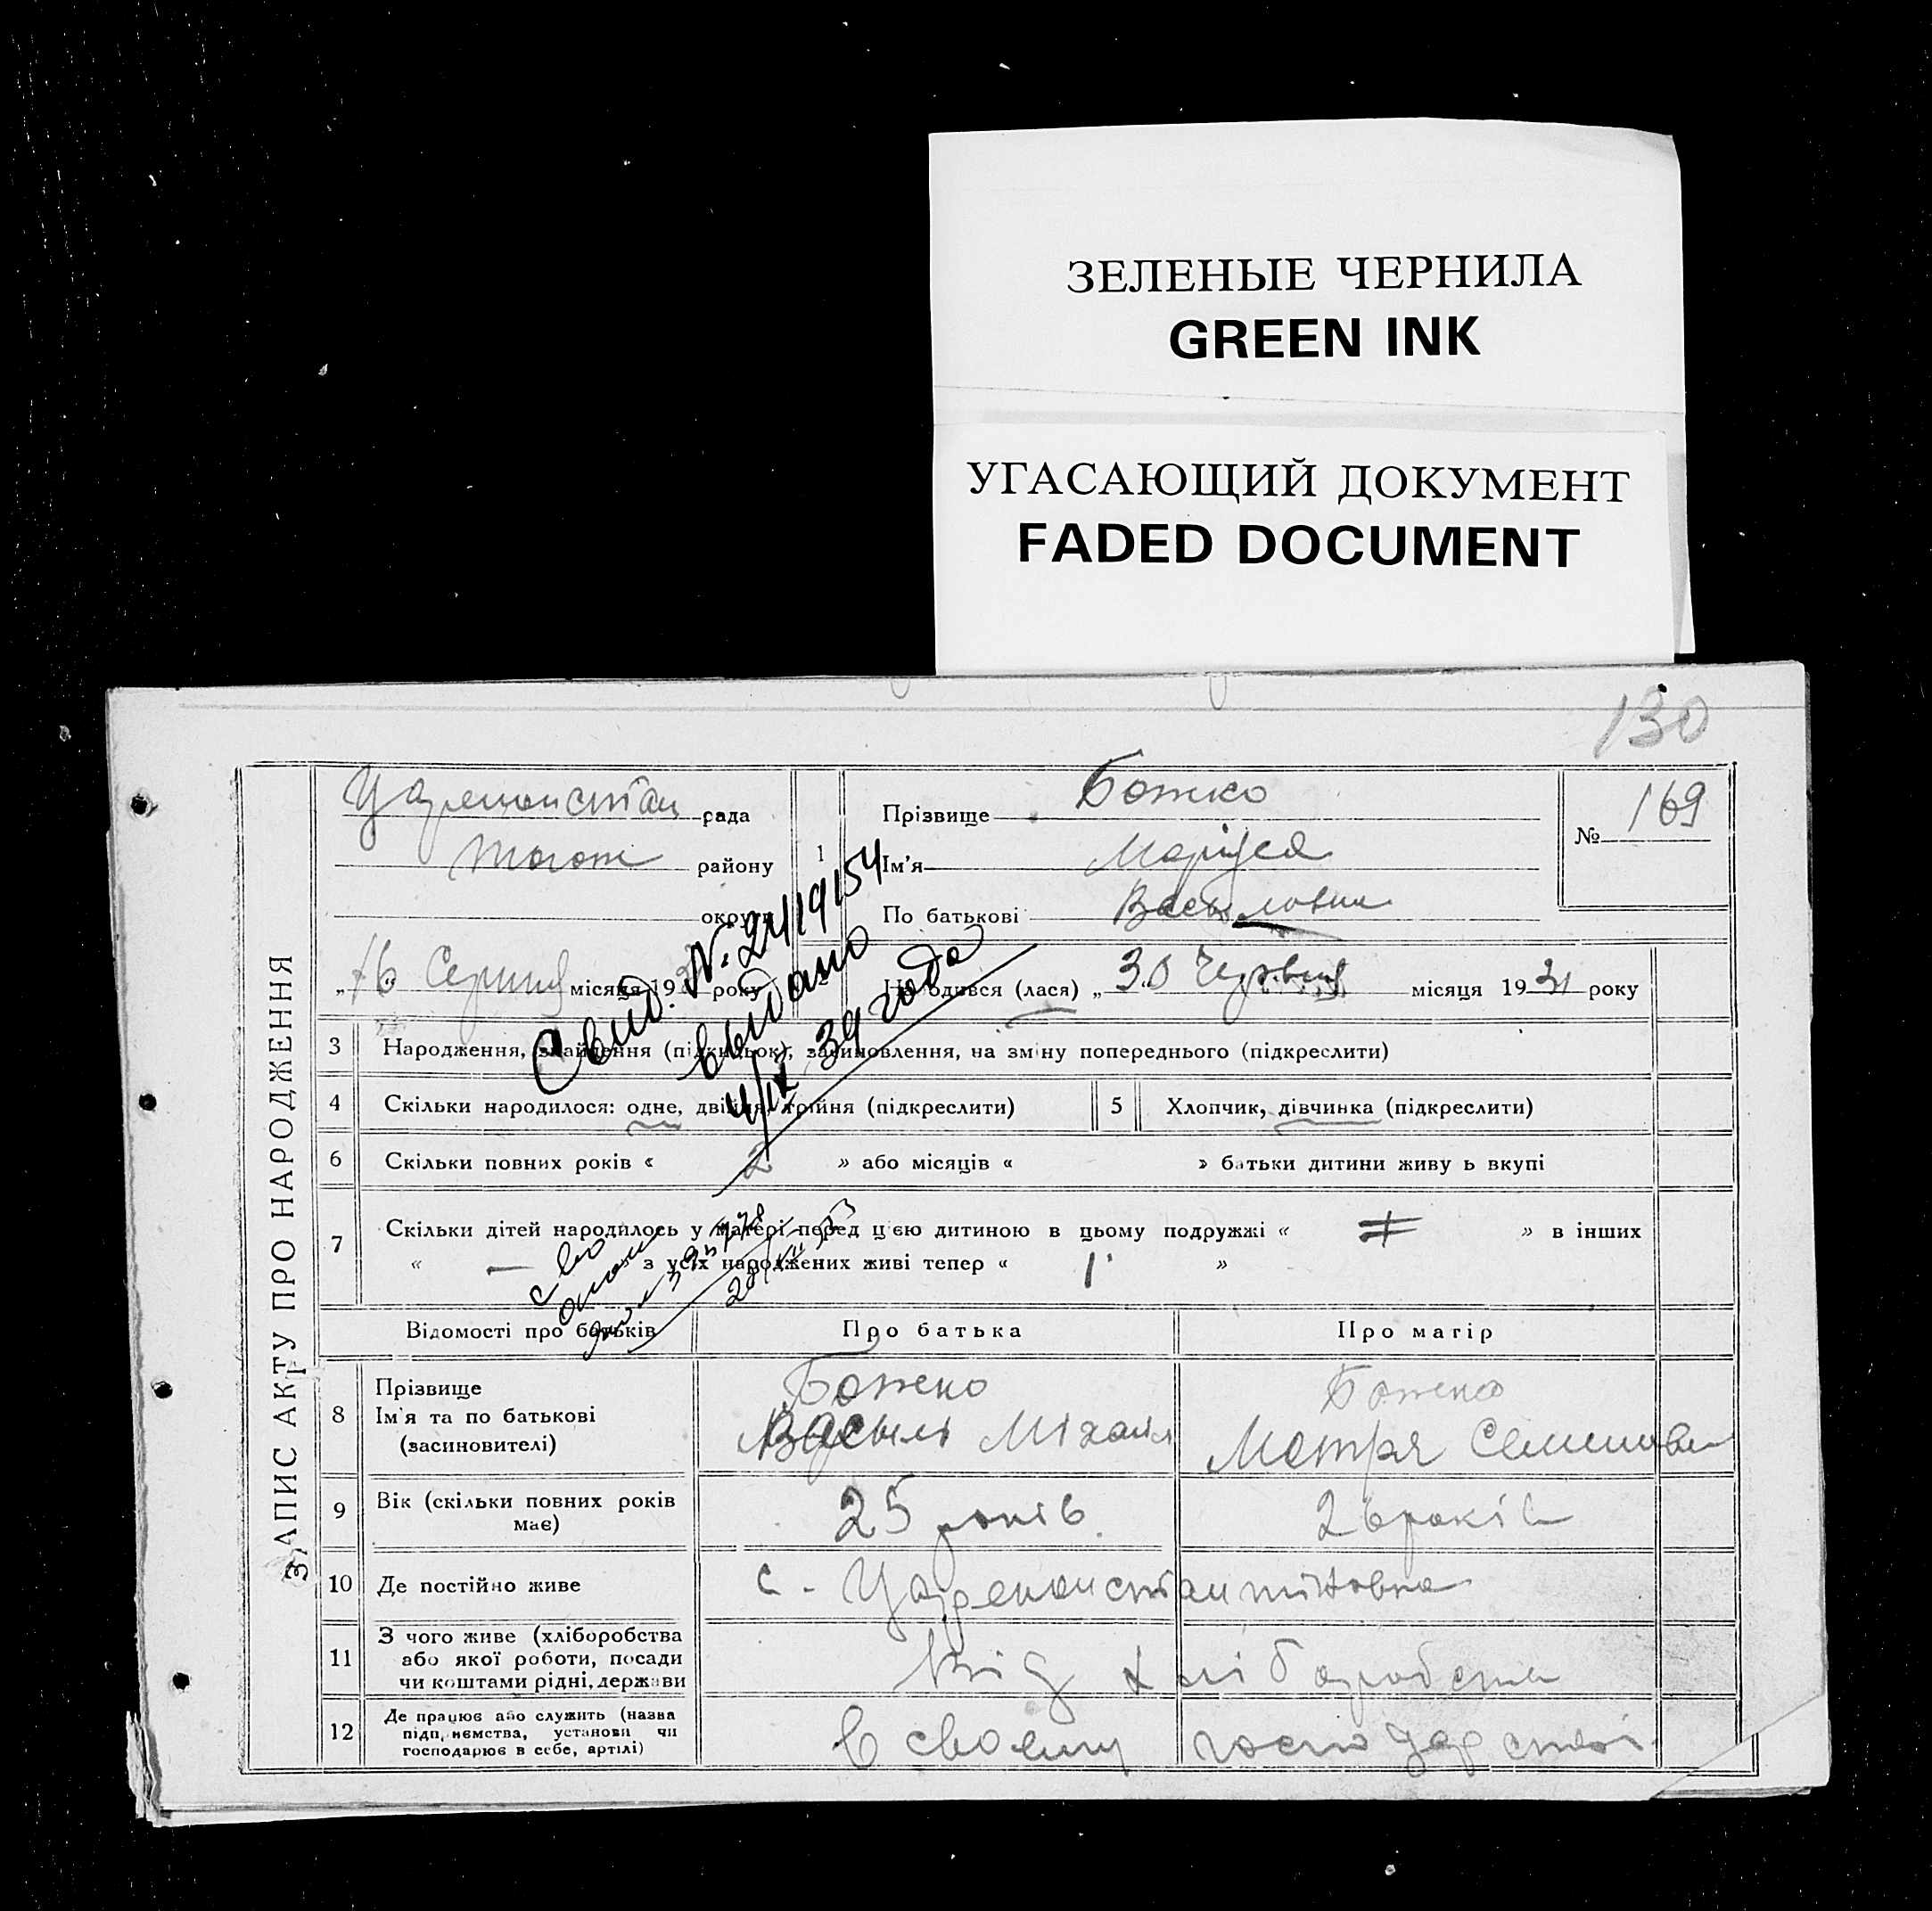 ЗЕЛЕНЫЕ ЧЕРНИЛА
GREEN INK
УГАСАЮЩИЙ ДОКУМЕНТ
FADED DOCUMENT
130
ЗАПИС АКТУ ПРО НАРОДЖЕННЯ
рада
району
округи
1
Прізвище Божко
Ім'я Маруся
По батькові Васыловна
№ 169
„16 Серпня місяця 19 року
Народився (лася) „30 Червня місяця 1931 року
Свид. N: 2419154
выдано
4/IX 39 года
3 Народження, знайдення (підкидьок), засиновлення, на зміну попереднього (підкреслити)
4 Скільки народилося: одне, двійня, трійня (підкреслити)
5 Хлопчик, дівчинка (підкреслити)
6 Скільки повних років « 2 » або місяців « » батьки дитини живуть вкупі
7 Скільки дітей народилось у матері перед цією дитиною в цьому подружжі « » в інших
« — з усіх народжених живі тепер « 1 »
Відомості про батьків
Про батька
Про матір
8 Прізвище
Ім'я та по батькові
(засиновителі)
Божко
Василь Міхайл
Божко
Мотря Семеновн
9 Вік (скільки повних років
має)
25 років
26 років
10 Де постійно живе
с. Цареконстантіновка
11 З чого живе (хліборобства
або якої роботи, посади
чи коштами рідні, держави
Від хліборобства
12 Де працює або служить (назва
підприємства, установи чи
господарює в себе, артілі)
В своему господарстві